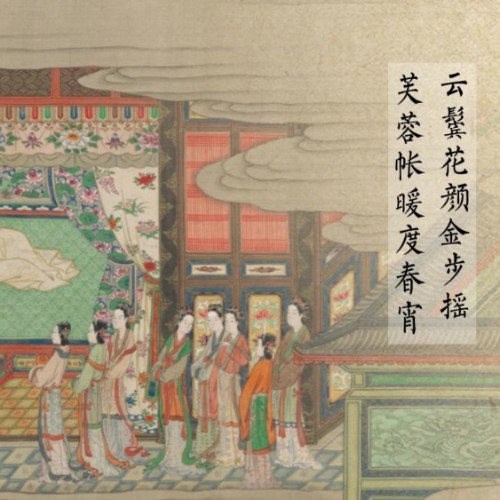 云鬓花颜金步摇
芙蓉帐暖度春宵